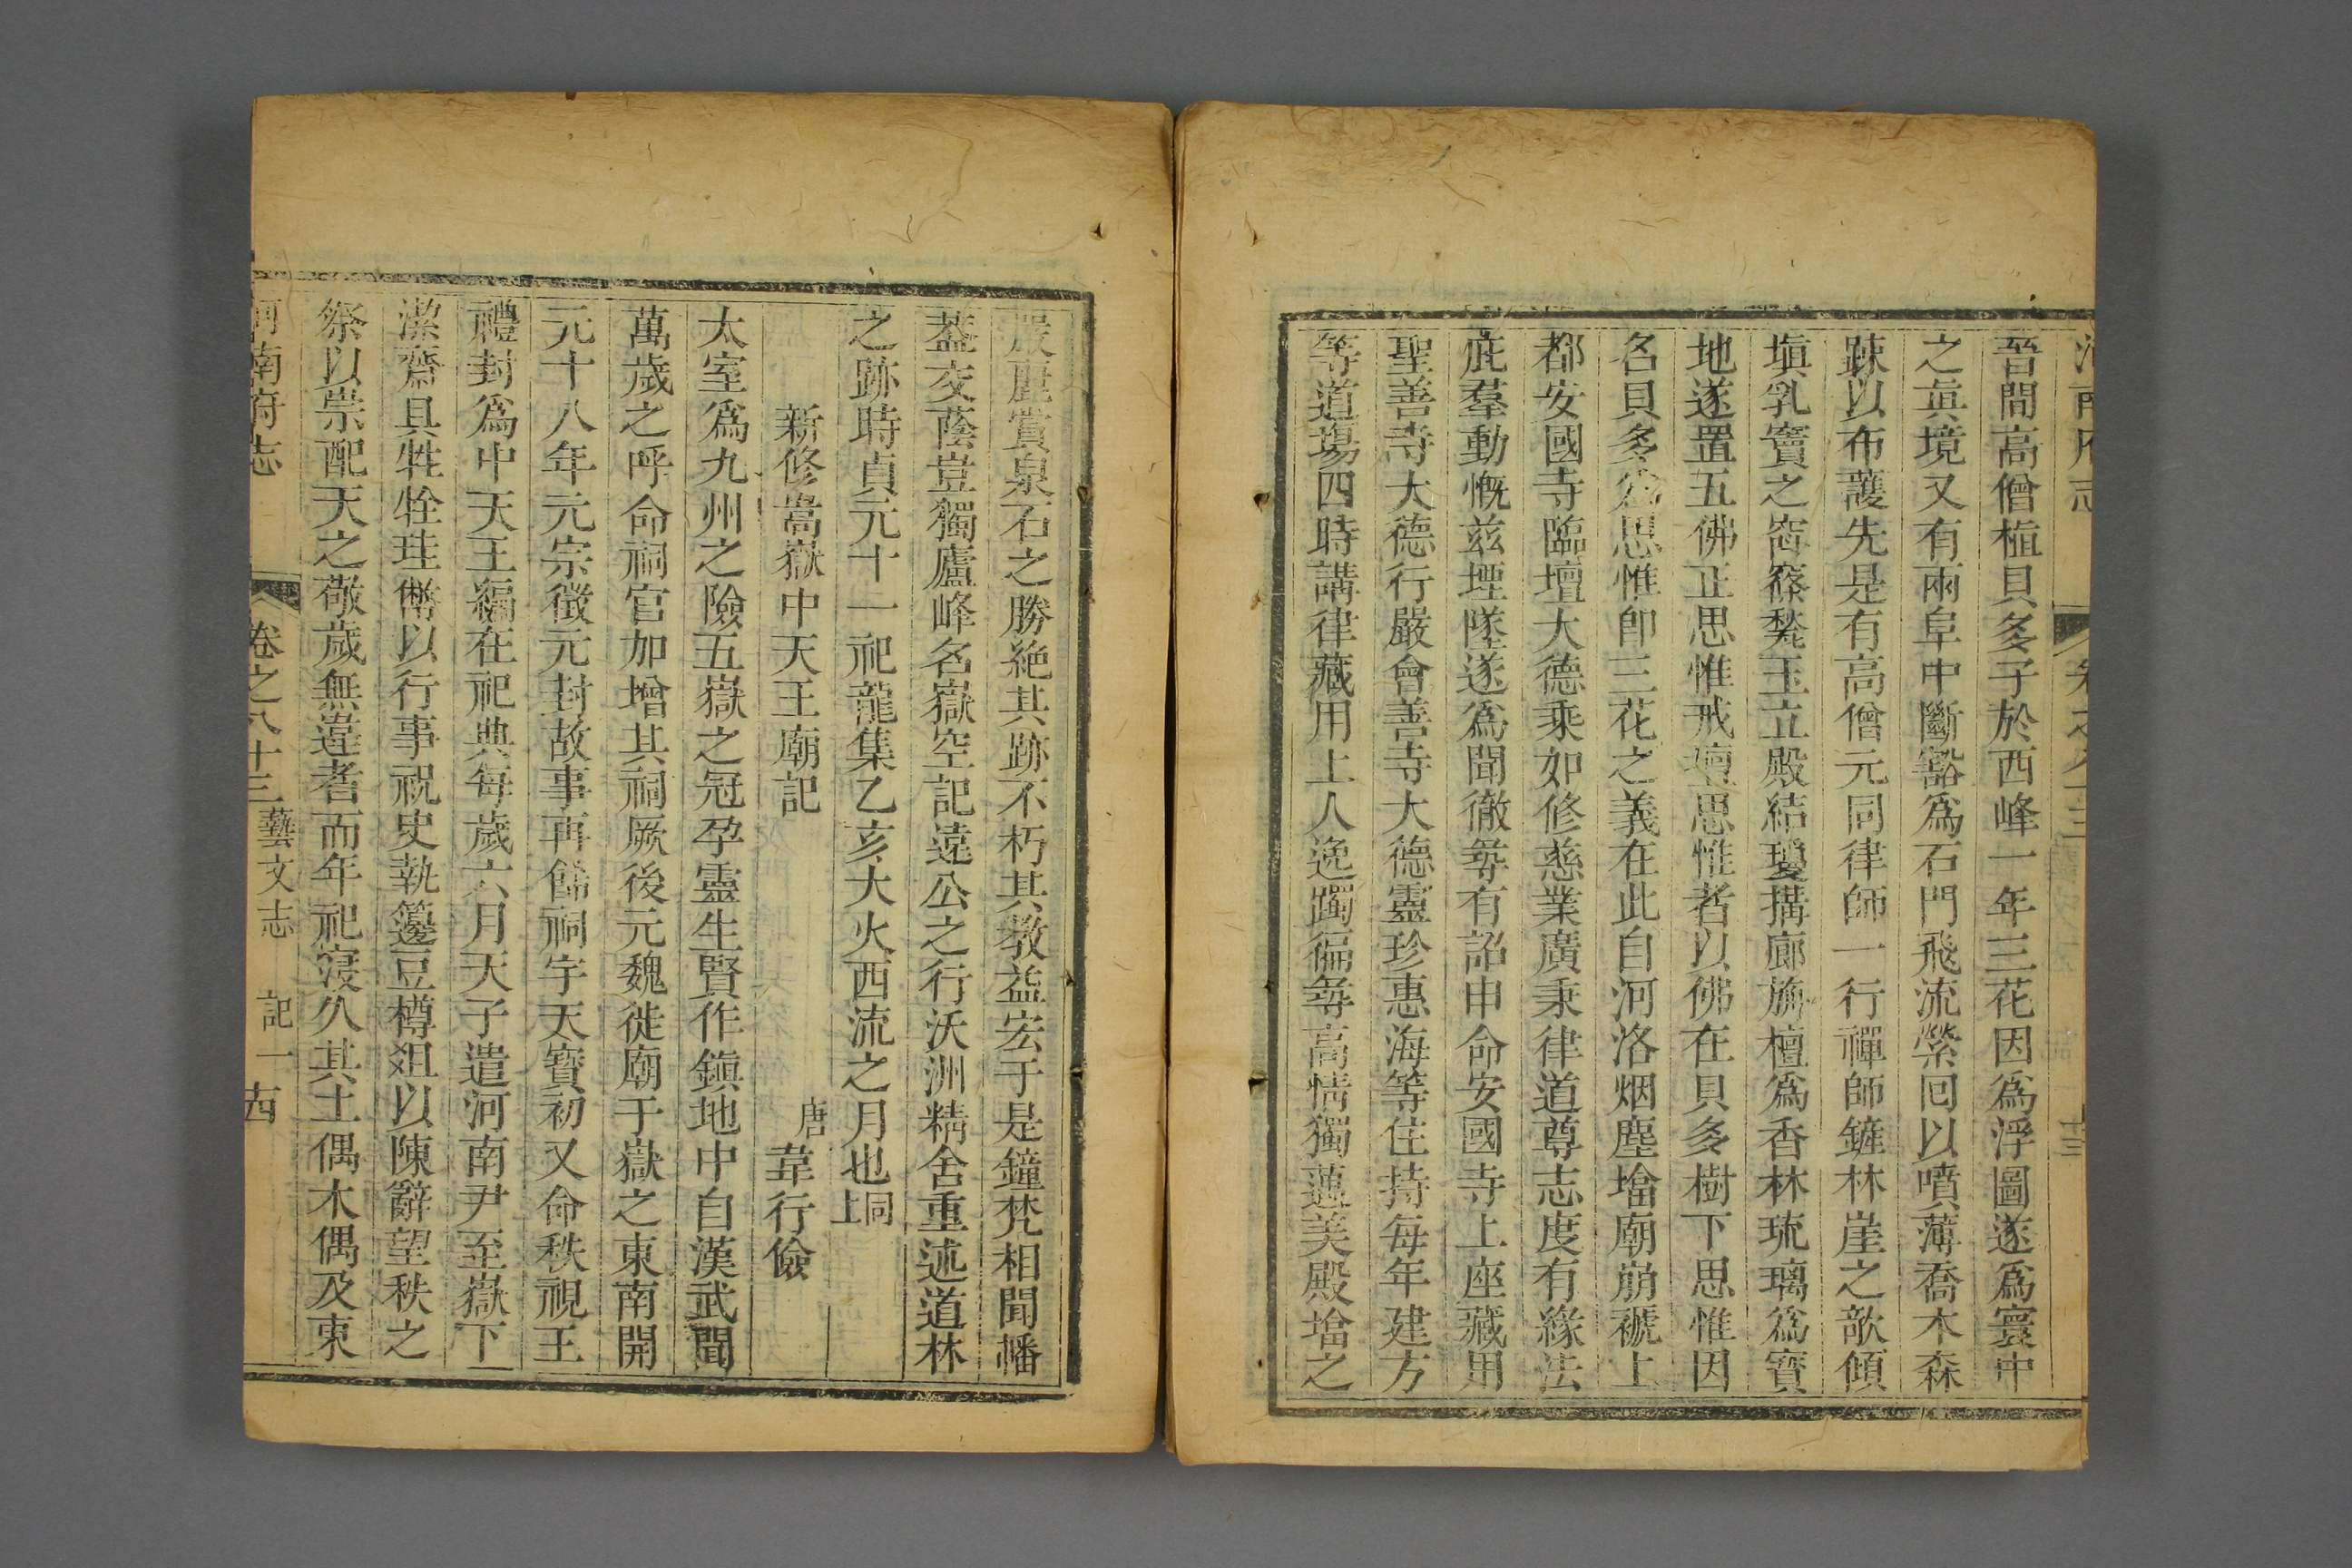 晉間高僧植貝多子於西峰一年三花因爲浮圖遂爲寰中
之眞境又有兩阜中斷豁爲石門飛流縈囘以噴薄喬木森
踈以布護先是有高僧元同律師一行禪師鏟林崖之欹傾
塡乳竇之窞篠甃玉立殿結瓊搆廊旃檀爲香林琉璃爲寶
地遂置五佛正思惟戒壇思惟者以佛在貝多樹下思惟因
名貝多爲思惟卽三花之義在此自河洛烟塵墖廟崩褫上
都安國寺臨壇大德乘如修慈業廣秉律道尊志度有緣法
庇羣動慨茲堙墜遂爲聞徹等有詔申命安國寺上座藏用
聖善寺大德行嚴會善寺大德靈珍惠海等住持每年建方
等道塲四時講律藏用上人逸躅徧尋高情獨邁美殿墖之
嚴麗賞泉石之勝絶其跡不朽其教益宏于是鐘梵相聞幡
葢交蔭豈獨廬峰名嶽空記遠公之行沃洲精舍重述道林
之跡時貞元十一祀龍集乙亥大火西流之月也同上
新修嵩嶽中天王廟記
唐韋行儉
太室爲九州之險五嶽之冠孕靈生賢作鎭地中自漢武聞
萬歲之呼命祠官加增其祠厥後元魏徙廟于嶽之東南開
元十八年元宗徵元封故事再飾祠宇天寶初又命秩視王
禮封爲中天王編在祀典每歲六月天子遣河南尹至嶽下
潔齋具牲牷珪幣以行事祝史執籩豆樽俎以陳辭望秩之
祭以崇配天之敬歲無違者而年祀寖久其土偶木偶及東
河南府志 卷之八十三 藝文志 記一 十四